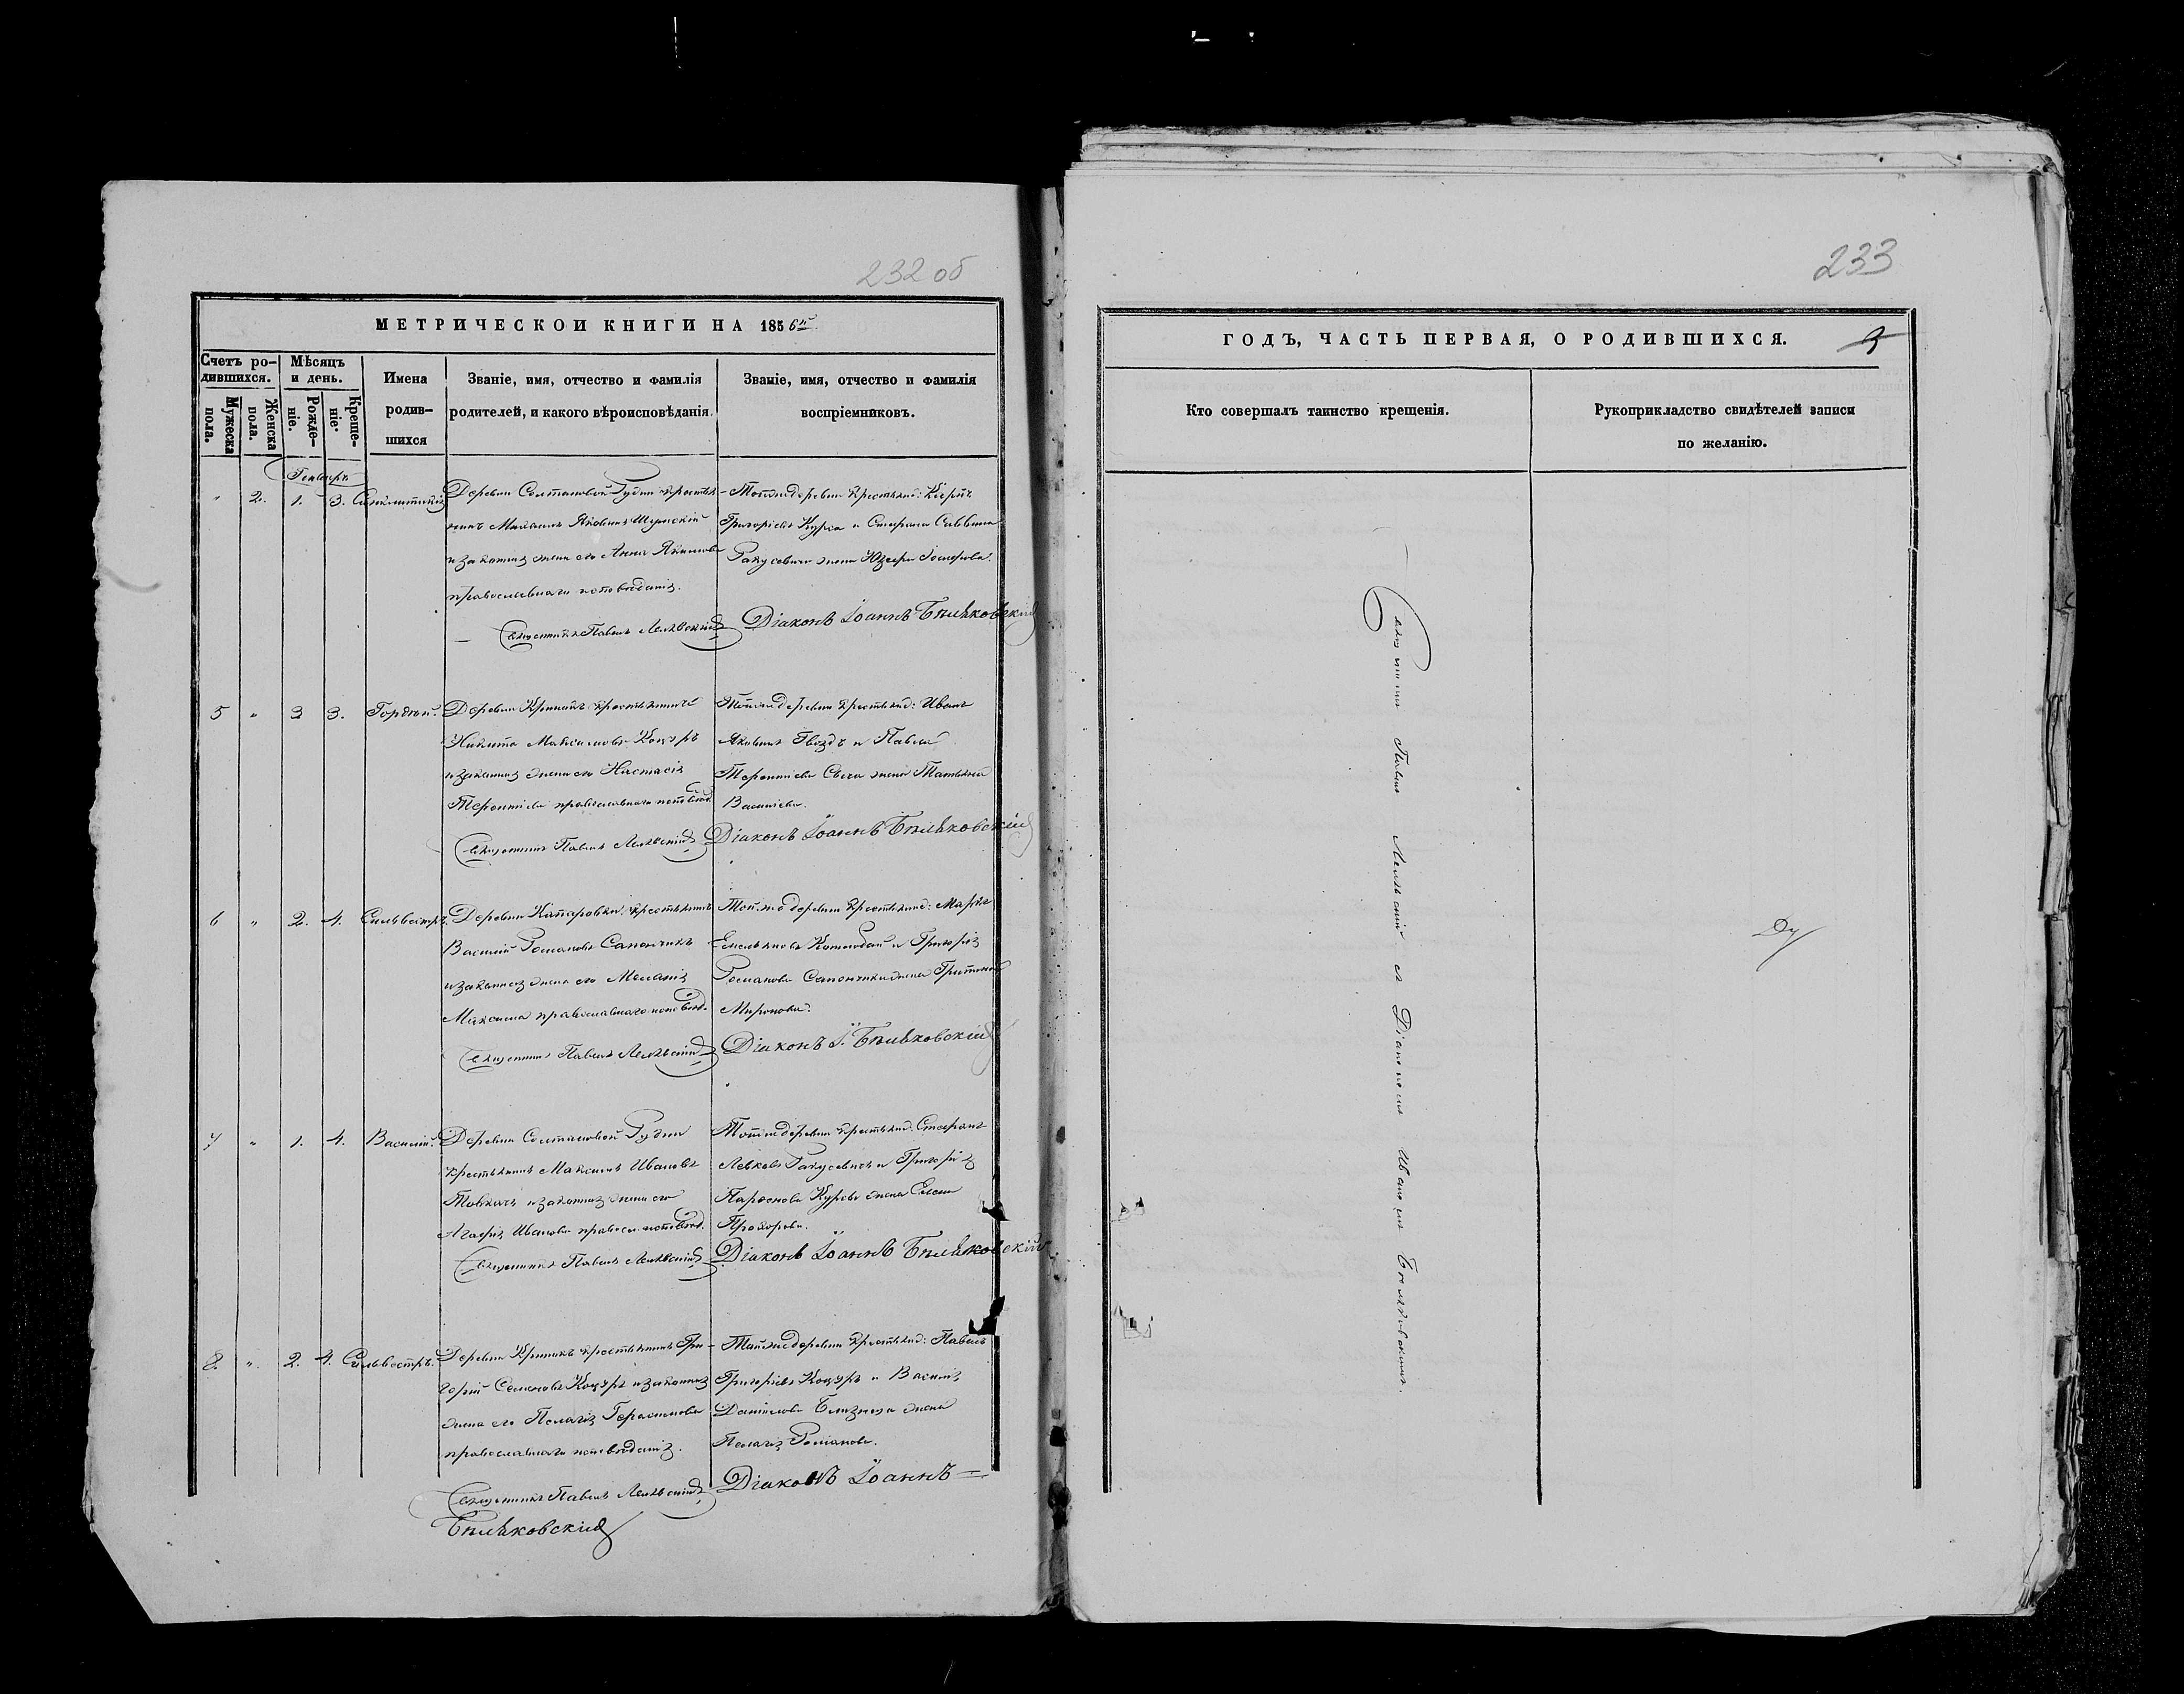 232 об
МЕТРИЧЕСКОИ КНИГИ НА 1856й
Счетъ ро-
дившихся.
Мужеска
пола.
Женска
пола.
Мѣсяцъ
и день.
Рожде-
ніе.
Креще-
ніе.
Имена
родив-
шихся
Званіе, имя, отчество и фамилія
родителей, и какого вѣроисповѣданія.
Званіе, имя, отчество и фамилія
воспріемниковъ.
Генварь
" 2. 1. 3. Синклитикія
Деревни Солтановой Рудни крестья-
нинъ Михаилъ Яковлевъ Шумскій
и законная жена его Анна Якимова
православнаго исповѣданія.
Священникъ Павелъ
Тойже деревни крестьяне:
Григоріевъ Курса и Стефана Саввина
Ракусевича жена Юзефа Іосифова.
Діаконъ Іоаннъ Бѣльковскій
5 " 3 3. Гордѣй.
Деревни Крынокъ крестьянинъ
Никита Максимовъ Коцуръ
и законная жена его Настасія
Терентіева православнаго исповѣд.
Священникъ Павелъ
Тойже деревни крестьяне: Иванъ
Яковлевъ Гвоздь и Павла
Терентіева жена Татьяна
Васильева.
Діаконъ Іоаннъ Бѣльковскій
6 " 2. 4. Сильвестръ.
Деревни крестьянинъ
Василій Романовъ Сапончикъ
и законная жена его Меланія
Максима православнаго исповѣд.
Священникъ Павелъ
Тойже деревни крестьяне: Марко
Емельяновъ и Григорія
Романова Сапончика жена
Миронова.
Діаконъ І. Бѣльковскій
7 " 1. 4. Василій.
Деревни Солтановой Рудни
крестьянинъ Максимъ Ивановъ
Товкачъ и законная жена его
Агафія Иванова правосл. исповѣд.
Священникъ Павелъ
Тойже деревни крестьяне: Стефанъ
Левковъ Ракусевичъ и Григорія
жена Елена
Прохорова.
Діаконъ Іоаннъ Бѣльковскій
8. " 2. 4. Сильвестръ.
Деревни Крынокъ крестьянинъ Гри-
горій Семеновъ Коцуръ и законная
жена его Пелагія Герасимова
православнаго исповѣданія.
Священникъ Павелъ
Тойже деревни крестьяне: Павелъ
Григоріевъ Коцуръ и Василія
Данилова Близнюка жена
Пелагія Романова.
Діаконъ Іоаннъ
Бѣльковскій
233
ГОДЪ, ЧАСТЬ ПЕРВАЯ, О РОДИВШИХСЯ.
3
Кто совершалъ таинство крещенія.
Рукоприкладство свидѣтелей записи
по желанію.
Священникъ Павелъ съ Діакономъ Иваномъ Бѣльковскимъ.